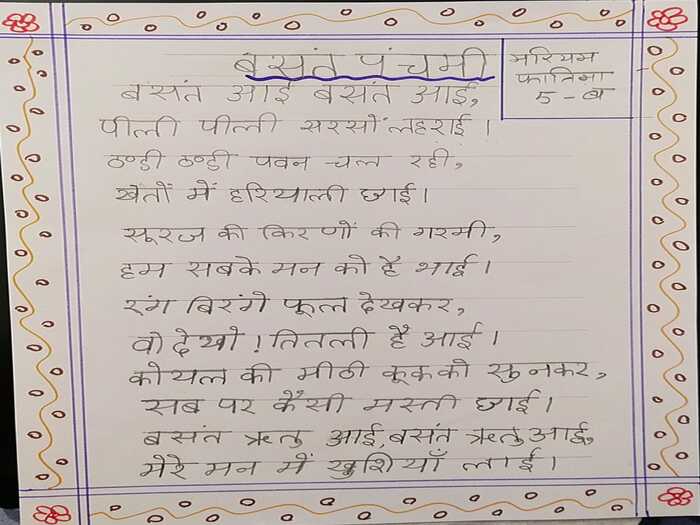 बसंत पंचमी
मरियम
फातिमा
5 - ब
बसंत आई बसंत आई,
पीली पीली सरसों लहराई ।
ठण्डी ठण्डी पवन चल रही,
खेतों में हरियाली छाई ।
सूरज की किरणों की गरमी,
हम सबके मन को है भाई ।
रंग बिरंगे फूल देखकर,
वो देखो ! तितली है आई ।
कोयल की मीठी कूक को सुनकर,
सब पर कैसी मस्ती छाई ।
बसंत ऋतु आई, बसंत ऋतु आई,
मेरे मन में खुशियाँ लाई ।